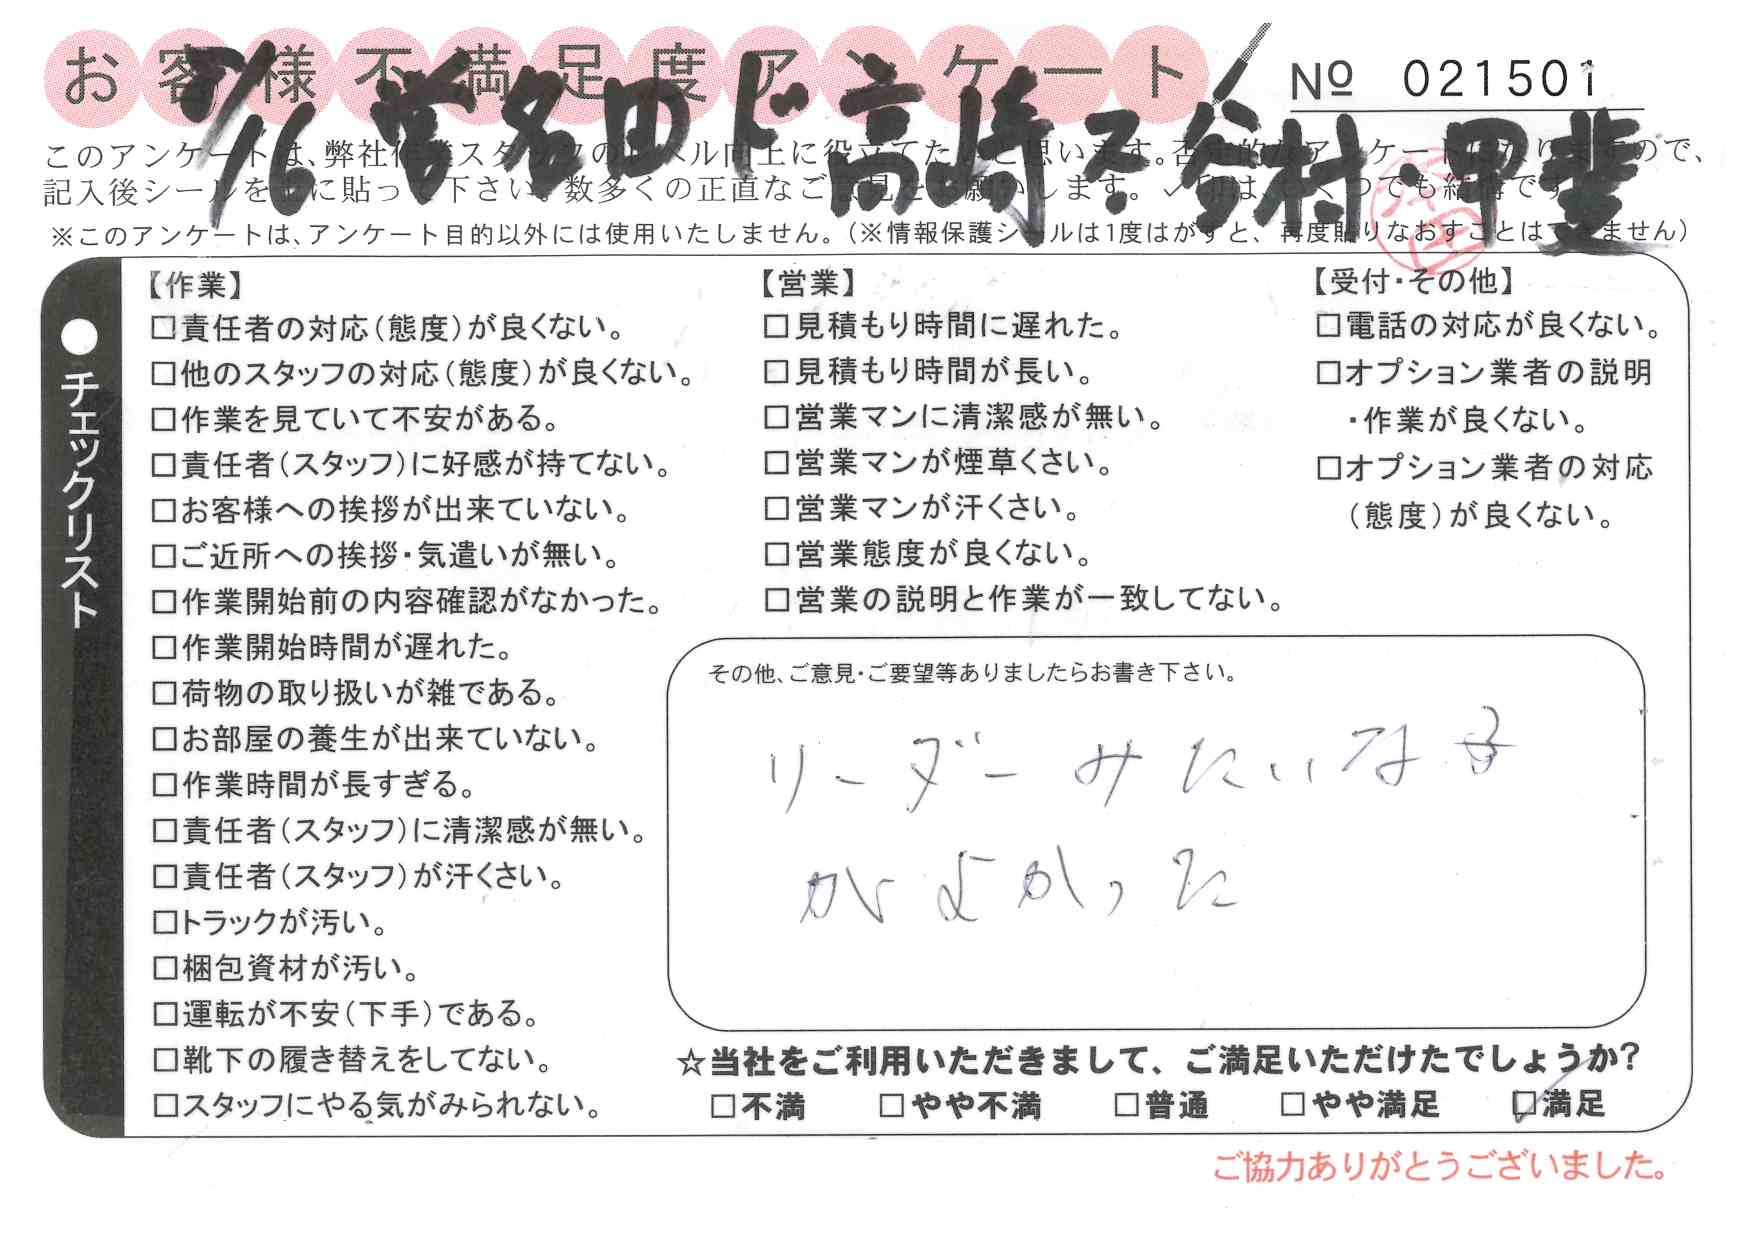 お客様不満足度アンケート
№ 021501
/16 営名田ド高崎子谷村・甲斐
このアンケートは、弊社作業スタッフのレベル向上に役立てたいと思います。否定的なアンケートになりますので、
記入後シールを上に貼って下さい。数多くの正直なご意見をお願いします。✓印は、いくつでも結構です。
※このアンケートは、アンケート目的以外には使用いたしません。（※情報保護シールは1度はがすと、再度貼りなおすことはできません）
●チェックリスト
【作業】
□責任者の対応（態度）が良くない。
□他のスタッフの対応（態度）が良くない。
□作業を見ていて不安がある。
□責任者（スタッフ）に好感が持てない。
□お客様への挨拶が出来ていない。
□ご近所への挨拶・気遣いが無い。
□作業開始前の内容確認がなかった。
□作業開始時間が遅れた。
□荷物の取り扱いが雑である。
□お部屋の養生が出来ていない。
□作業時間が長すぎる。
□責任者（スタッフ）に清潔感が無い。
□責任者（スタッフ）が汗くさい。
□トラックが汚い。
□梱包資材が汚い。
□運転が不安（下手）である。
□靴下の履き替えをしてない。
□スタッフにやる気がみられない。
【営業】
□見積もり時間に遅れた。
□見積もり時間が長い。
□営業マンに清潔感が無い。
□営業マンが煙草くさい。
□営業マンが汗くさい。
□営業態度が良くない。
□営業の説明と作業が一致してない。
【受付・その他】
□電話の対応が良くない。
□オプション業者の説明
・作業が良くない。
□オプション業者の対応
（態度）が良くない。
その他、ご意見・ご要望等ありましたらお書き下さい。
リーダーみたいな子
がよかった
☆当社をご利用いただきまして、ご満足いただけたでしょうか?
□不満 □やや不満 □普通 □やや満足 ☑満足
ご協力ありがとうございました。